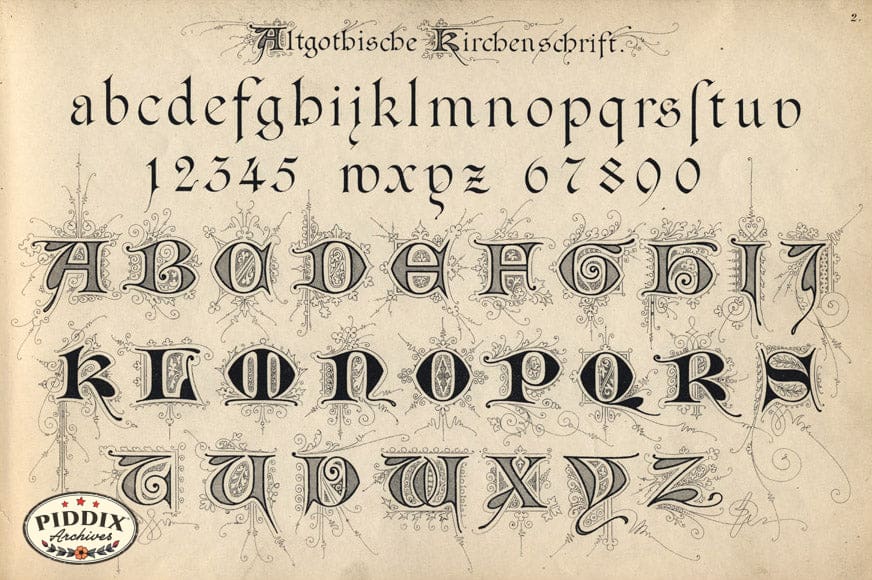 2.
Altgothische Kirchenschrift.
abcdefghijklmnopqrsſtuv
12345 wxyz 67890
ABCDEFGHIJ
KLMNOPQRS
TUVWXYZ
PIDDIX
Archives